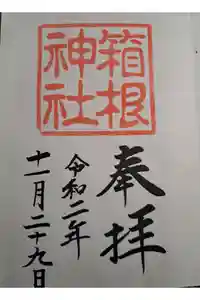 奉拝
箱根
神社
令和二年
十一月二十九日